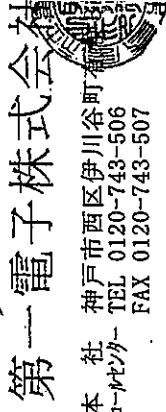 第一電子株式会社
本 社 神戸市西区伊川谷町
コールセンター TEL 0120-743-506
FAX 0120-743-507